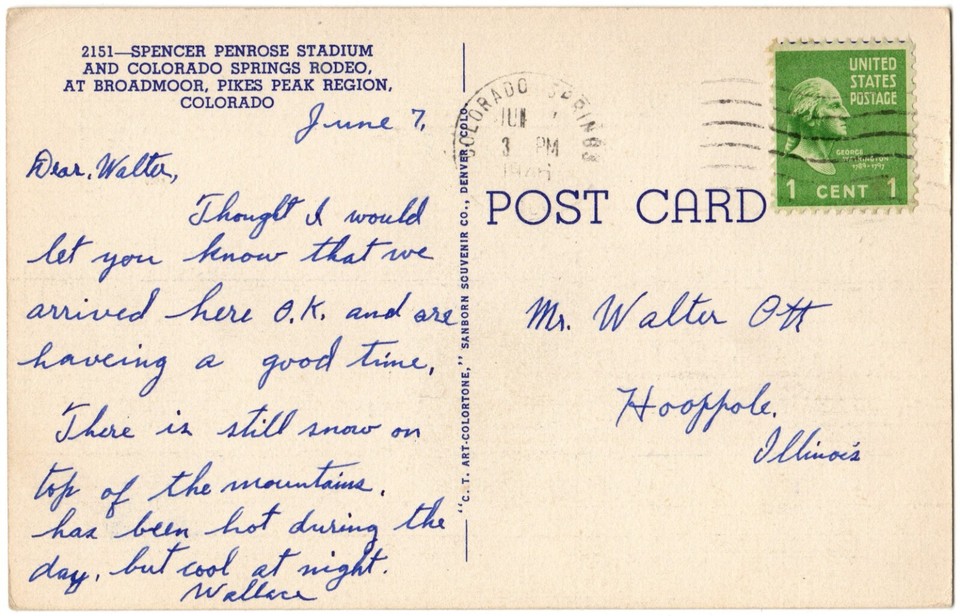 2151—SPENCER PENROSE STADIUM
AND COLORADO SPRINGS RODEO,
AT BROADMOOR, PIKES PEAK REGION,
COLORADO
June 7,
Dear, Walter,
Thought I would
let you know that we
arrived here O.K. and are
haveing a good time,
There is still snow on
top of the mountains.
has been hot during the
day, but cool at night.
Wallace
"C. T. ART-COLORTONE," SANBORN SOUVENIR CO., DENVER, COLO.
COLORADO SPRINGS
JUN 7
3 PM
POST CARD
UNITED
STATES
POSTAGE
GEORGE
WASHINGTON
1789-1797
1 CENT 1
Mr. Walter Ott
Hooppole.
Illinois